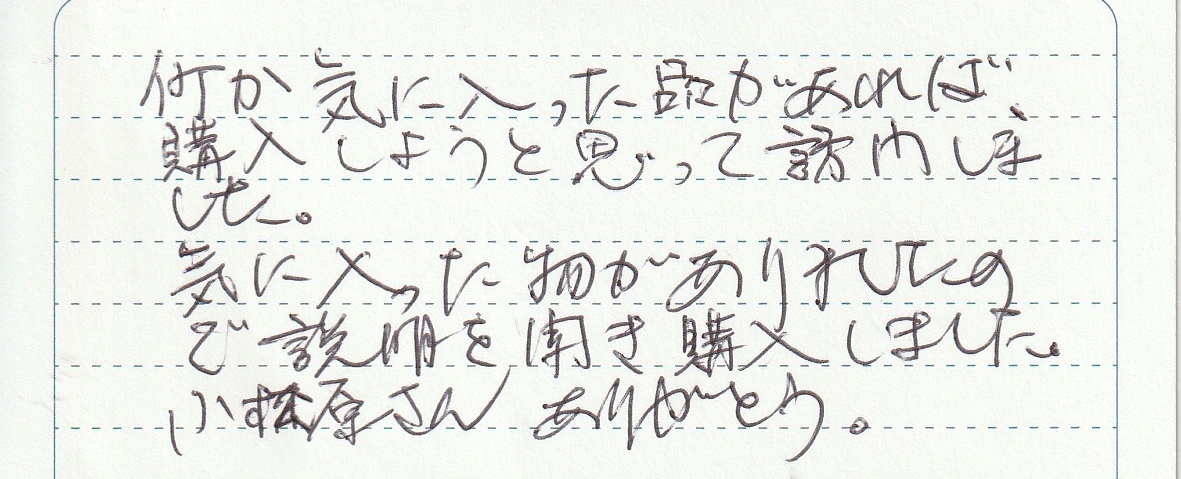 何か気に入った品があれば、
購入しようと思って訪問しま
した。
気に入った物がありましたの
で説明を聞き購入しました。
小松原さんありがとう。